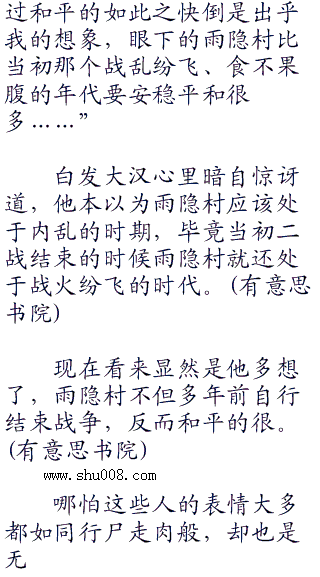 过和平的如此之快倒是出乎
我的想象，眼下的雨隐村比
当初那个战乱纷飞、食不果
腹的年代要安稳平和很
多……”
白发大汉心里暗自惊讶
道，他本以为雨隐村应该处
于内乱的时期，毕竟当初二
战结束的时候雨隐村就还处
于战火纷飞的时代。(有意思
书院)
现在看来显然是他多想
了，雨隐村不但多年前自行
结束战争，反而和平的很。
(有意思书院)
www.shu008.com
哪怕这些人的表情大多
都如同行尸走肉般，却也是
无